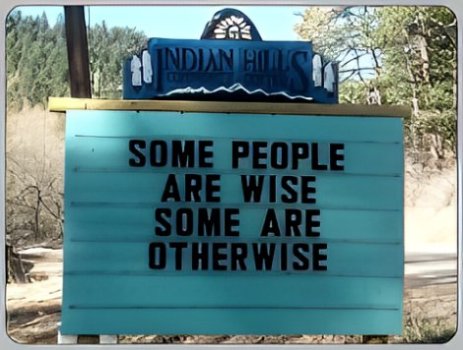 INDIAN HILLS
COMMUNITY CENTER
SOME PEOPLE
ARE WISE
SOME ARE
OTHERWISE